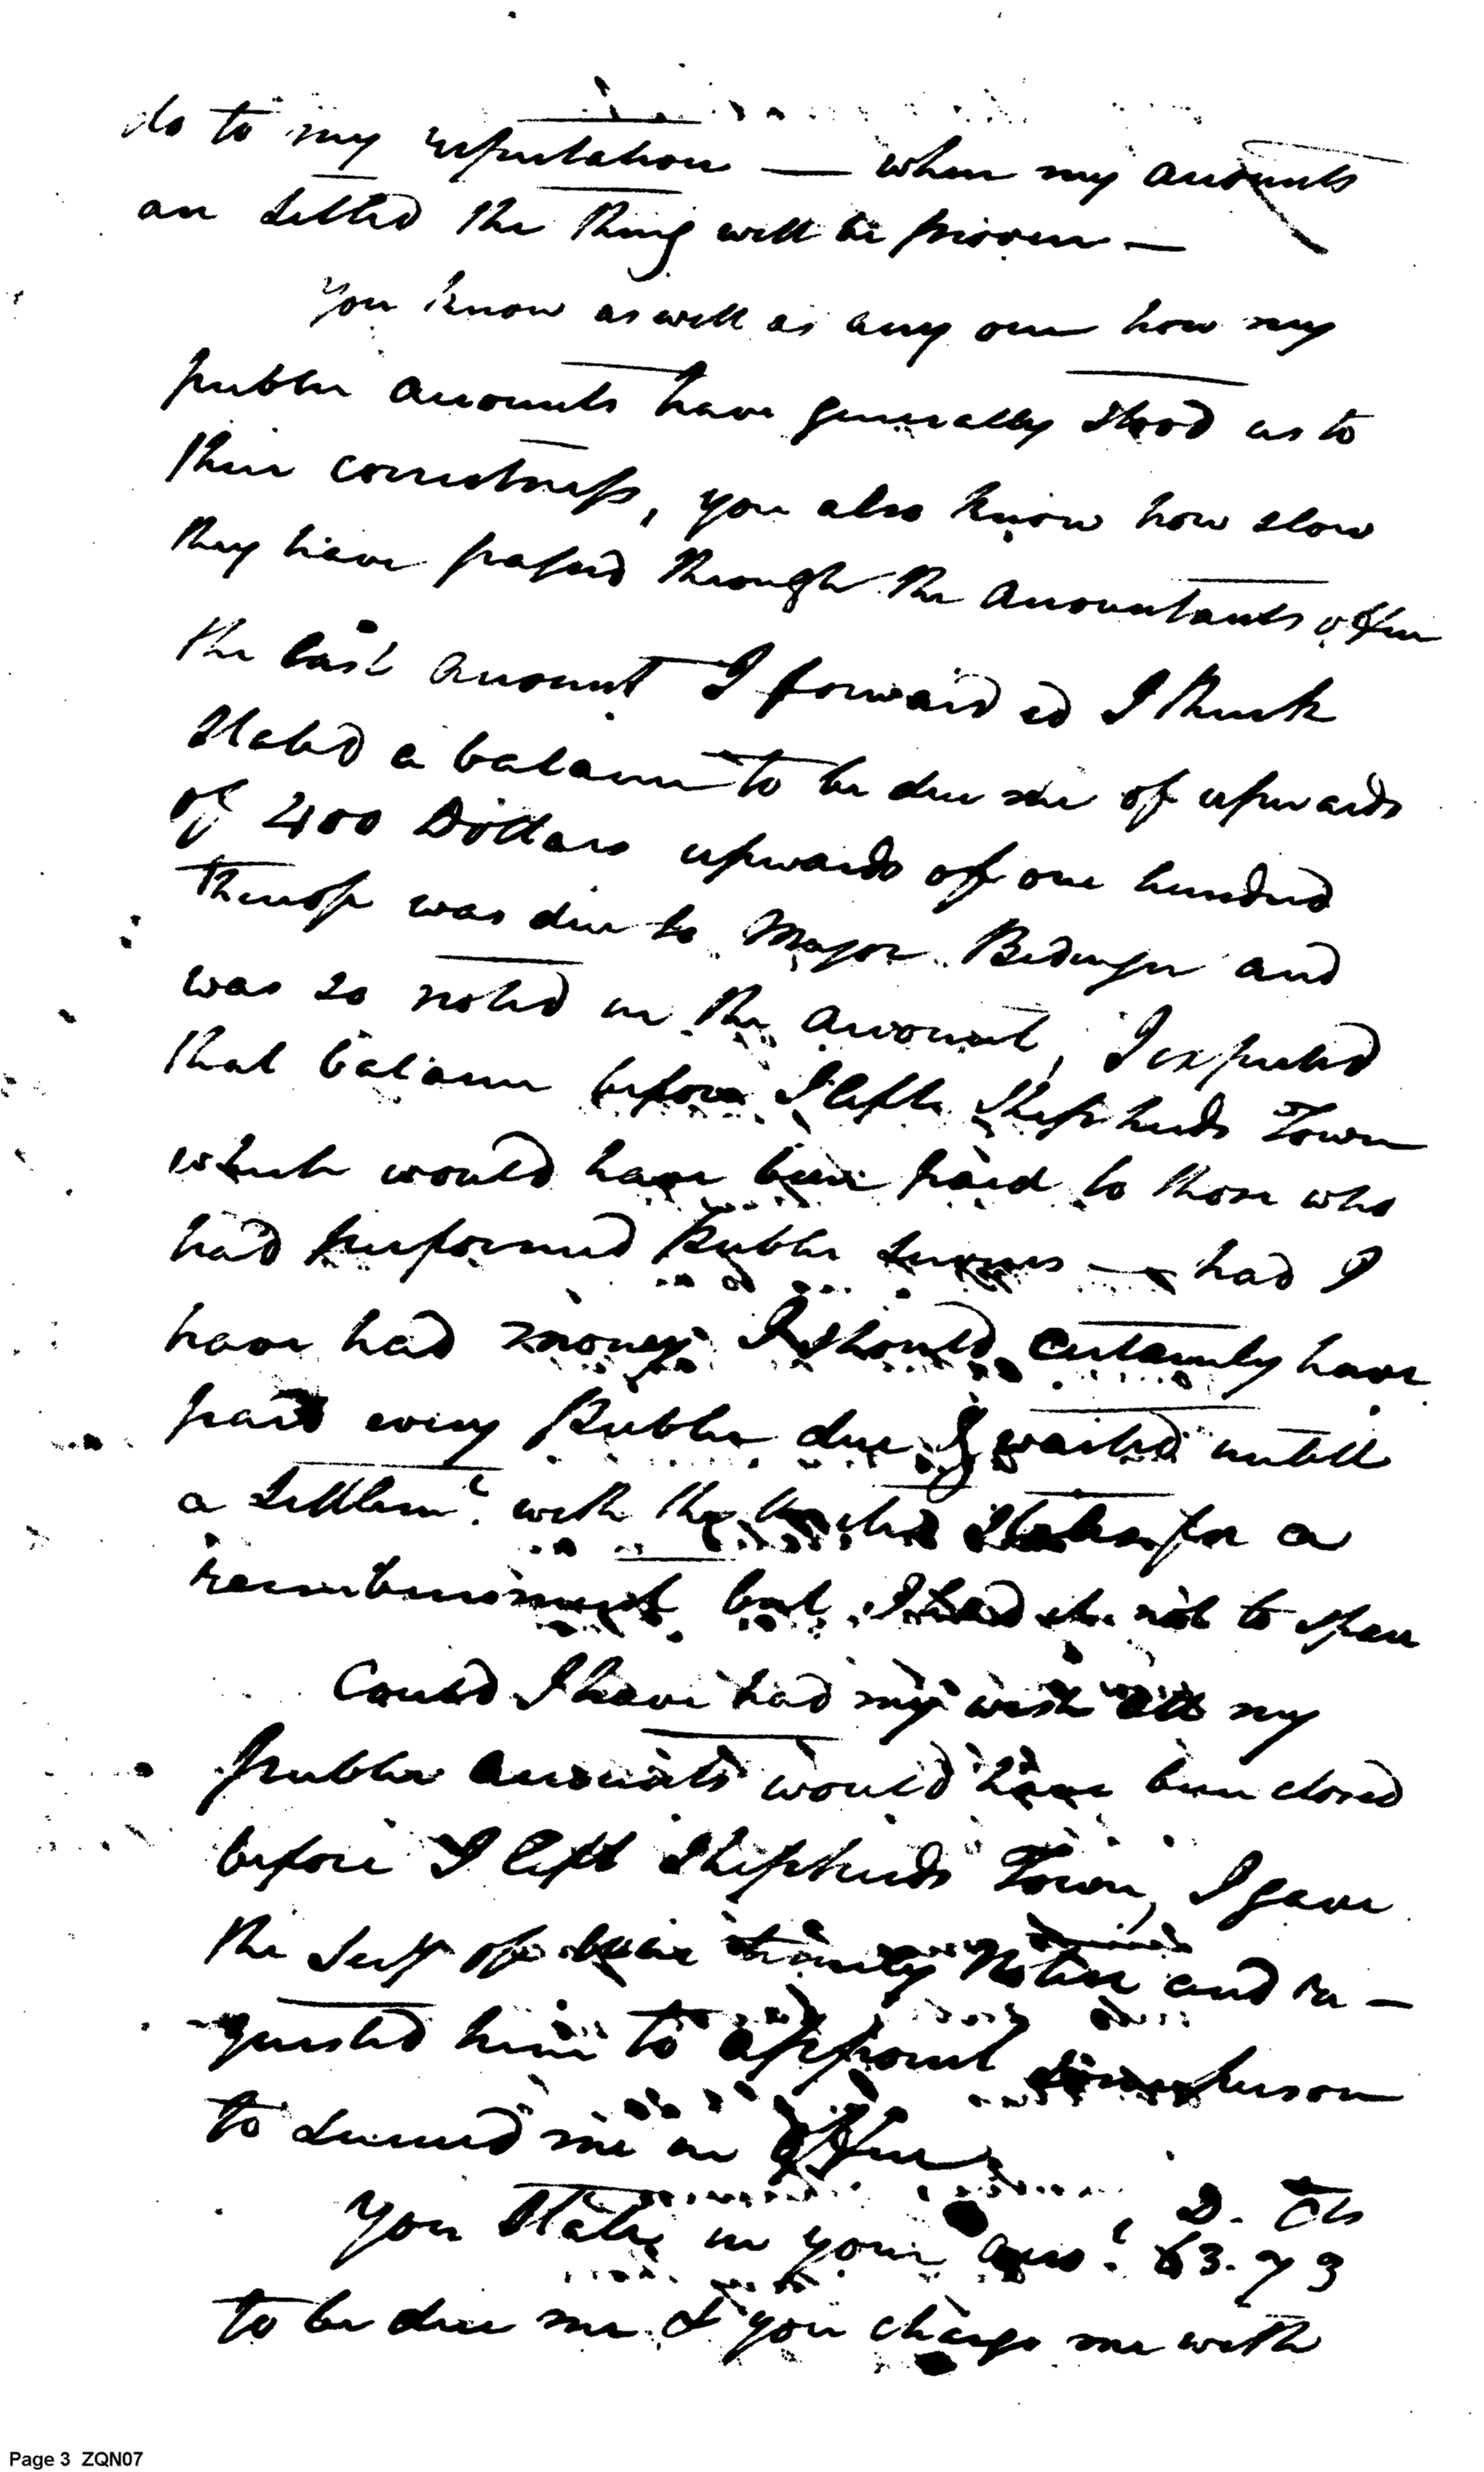 do to my reputation — when my accounts
are settled the thing will be proven —
You know as well as any one how my
public accounts have generally stood as to
their correctness, you also know how slow
they have passed through the Accountants office
the last account I forwarded I think
stated a balance to be due me of upwards
of 400 Dollars upwards of one hundred
thereof was due to Major Bedinger and
was so noted in the account, I expected
that balance before I left Shepherds Town
which would have been paid to those who
had performed Public services — had I
have had money I should certainly have
paid every Public due & waited untill
a settlemt. with the United States for a
reimbursment but I had it not to spare
Could I have had my wish all my
public accounts would have been closed
before I left Shepherds Town, I gave
the Secy of War timely Notice and re-
quested him to appoint some person
to succeed me in office
D. Cts
You state in your acct. 63.73
to be due me & you charge me with
Page 3 ZQN07